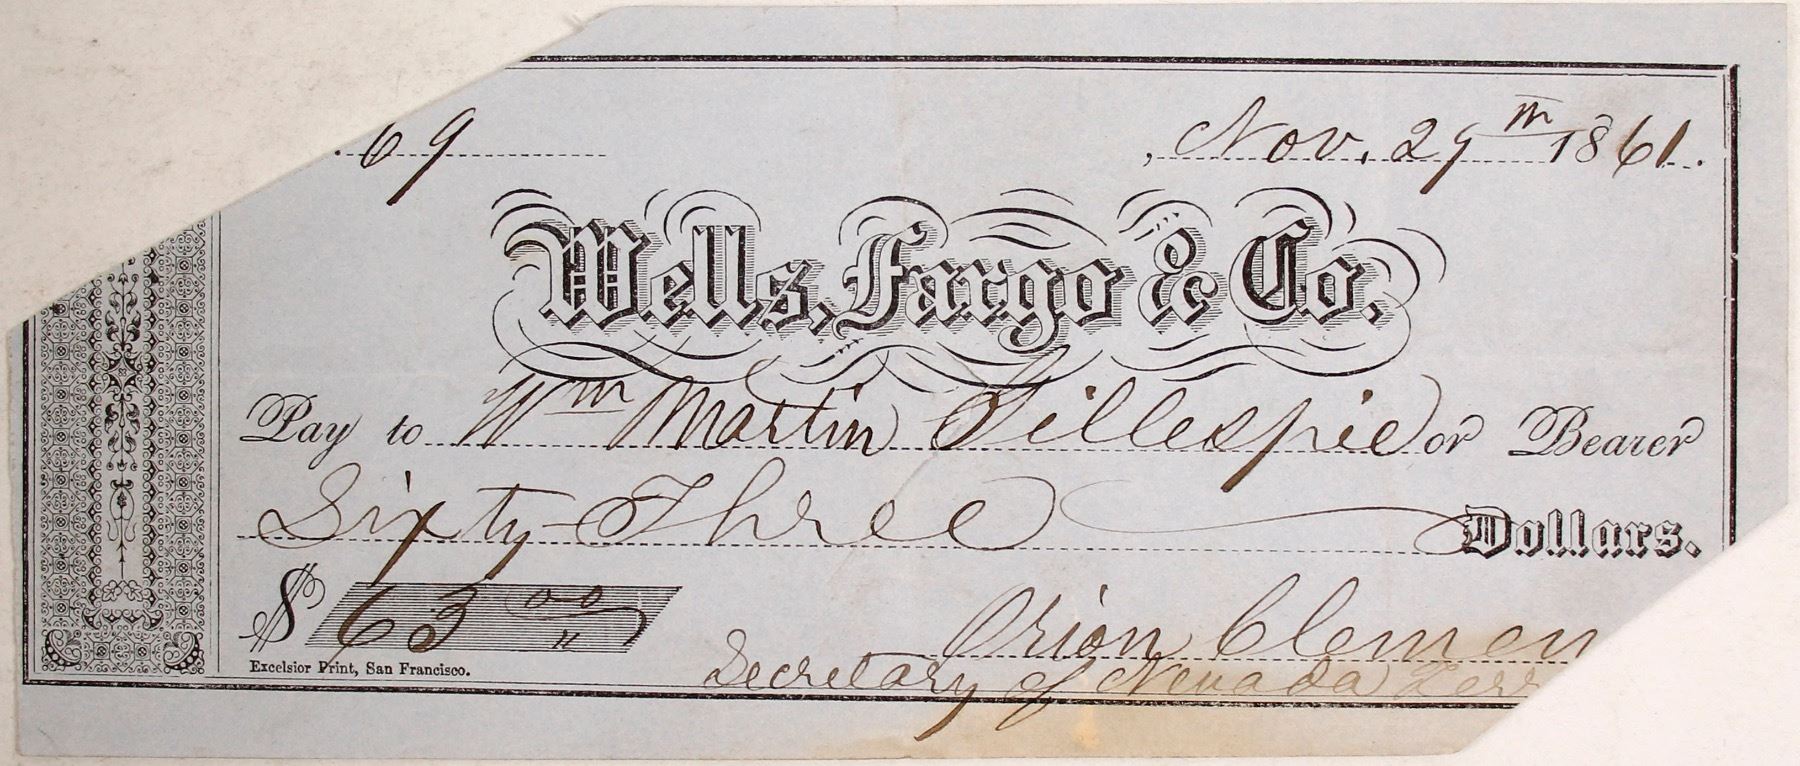 69
, Nov. 29th 1861.
Wells, Fargo & Co.
Pay to Wm Martin Gillespie or Bearer
Sixty-Three Dollars.
$ 63 00
Orion Clemen
Secretary of Nevada Terr
Excelsior Print, San Francisco.